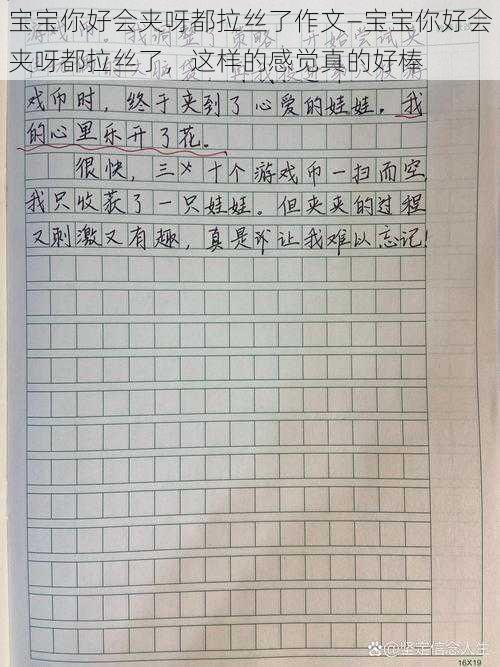 宝宝你好会夹呀都拉丝了作文—宝宝你好会
夹呀都拉丝了，这样的感觉真的好棒
戏币时，终于夹到了心爱的娃娃。我
的心里乐开了花。
很快，三十个游戏币一扫而空
我只收获了一只娃娃。但夹夹的过程
又刺激又有趣，真是让我难以忘记！
@坚定信念人生
16X19